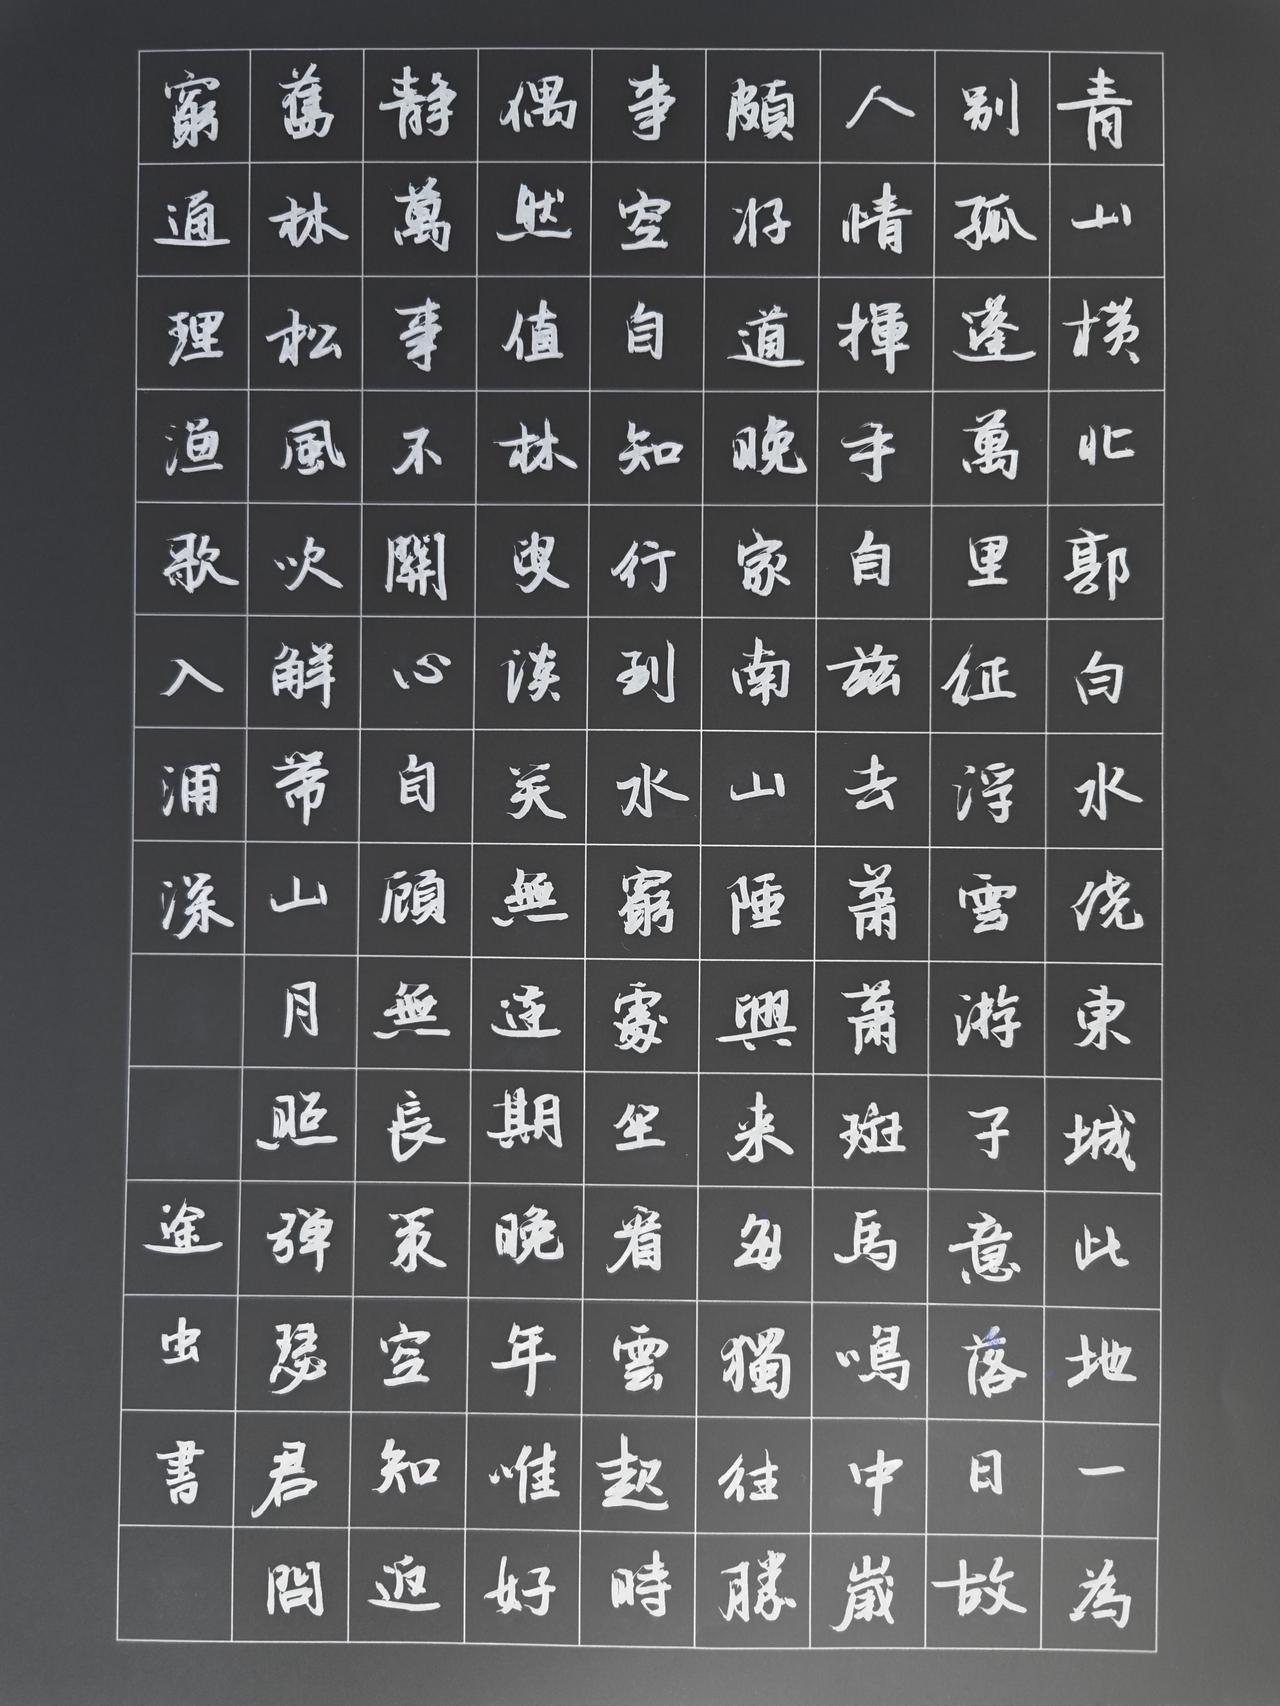 青山横北郭白水绕東城此地一為
别孤蓬萬里征浮雲游子意落日故
人情揮手自兹去蕭蕭斑馬鳴中歲
頗好道晚家南山陲興来每獨往勝
事空自知行到水窮處坐看雲起時
偶然值林叟談笑無還期晚年唯好
静萬事不關心自顧無長策空知返
舊林松風吹解帶山月照弹琴君問
窮通理漁歌入浦深 途虫書